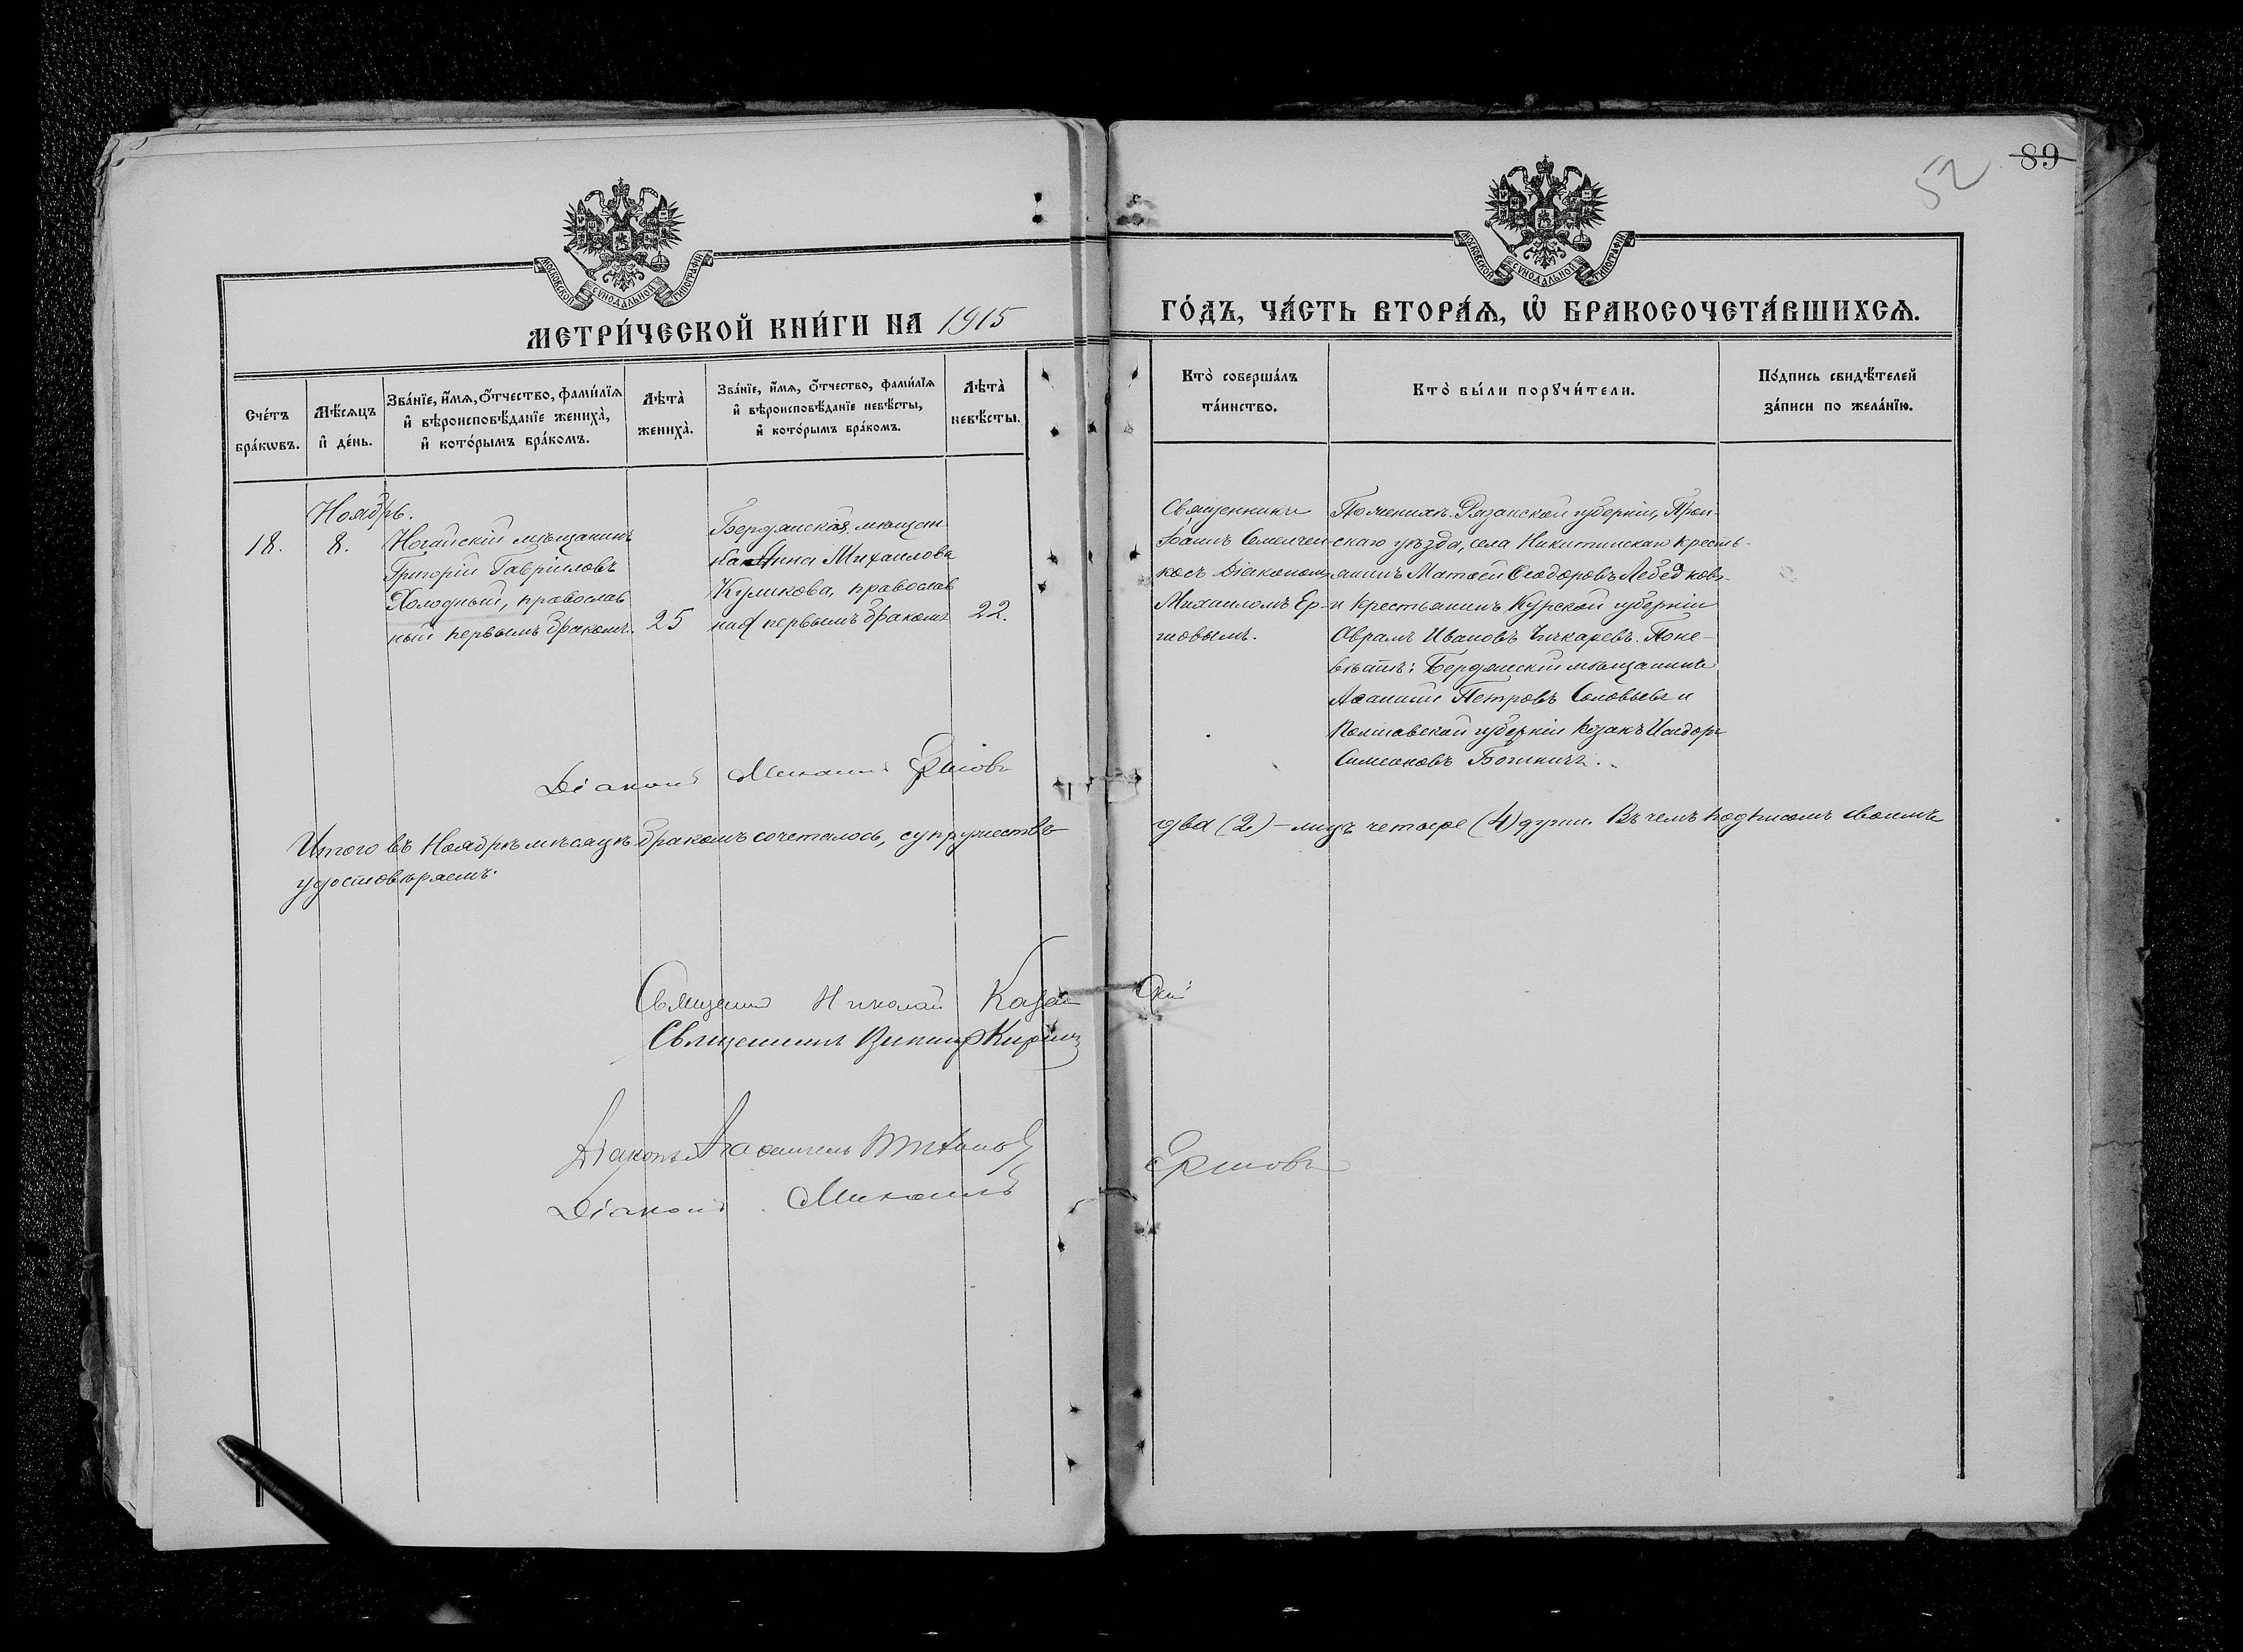 52
89
МОСКОВСКОЙ СѴНОДАЛЬНОЙ ТИПОГРАФІИ
МОСКОВСКОЙ СѴНОДАЛЬНОЙ ТИПОГРАФІИ
МЕТРИ́ЧЕСКОЙ КНИ́ГИ НА 1915
ГО́ДЪ, ЧА́СТЬ ВТОРА́Ѧ, Ѡ҆ БРАКОСОЧЕТА́ВШИХСѦ.
Сче́тъ
бра́кѡвъ.
Мѣ́сѧцъ
и҆ де́нь.
Зва́нїе, и҆́мѧ, ѻ҆́тчество, фами́лїѧ
и҆ вѣроисповѣ́данїе жениха̀,
и҆ кото́рымъ бра́комъ.
Лѣта̀
жениха̀.
Зва́нїе, и҆́мѧ, ѻ҆́тчество, фами́лїѧ
и҆ вѣроисповѣ́данїе невѣ́сты,
и҆ кото́рымъ бра́комъ.
Лѣта̀
невѣ́сты.
Кто̀ соверша́лъ
та́инство.
Кто̀ бы́ли порꙋчи́тели.
По́дпись свидѣ́телей
за́писи по жела́нїю.
Ноябрь.
18.
8.
Ногайскій мѣщанинъ
Григорій Гавріиловъ
Холодный, православ
ный первымъ бракомъ.
25
Бердянская мѣщан
ка Анна Михаилова
Куликова, православ
ная первымъ бракомъ
22.
Священникъ
Іоаннъ Семенчен-
ко съ Діакономъ
Михаиломъ Ер-
шовымъ.
По женихѣ: Рязанской губерніи, Прон-
скаго уѣзда, села Никитинскаго кресть-
янинъ Матѳей Ѳеодоровъ
и крестьянинъ Курской губерніи
Аврамъ Ивановъ Чичкаревъ. По не-
вѣстѣ: Бердянскій мѣщанинъ
Петровъ Соловьевъ и
Полтавской губерніи козакъ Исидоръ
Симеоновъ
Діаконъ Михаилъ Ершовъ
Итого въ Ноябрѣ мѣсяцѣ бракомъ сочеталось, супружествъ
два (2) – лицъ четыре (4) души. Въ чемъ подписомъ своимъ
удостовѣряемъ.
Священникъ Николай Казанскій
Священникъ
Діаконъ
Діаконъ Михаилъ Ершовъ